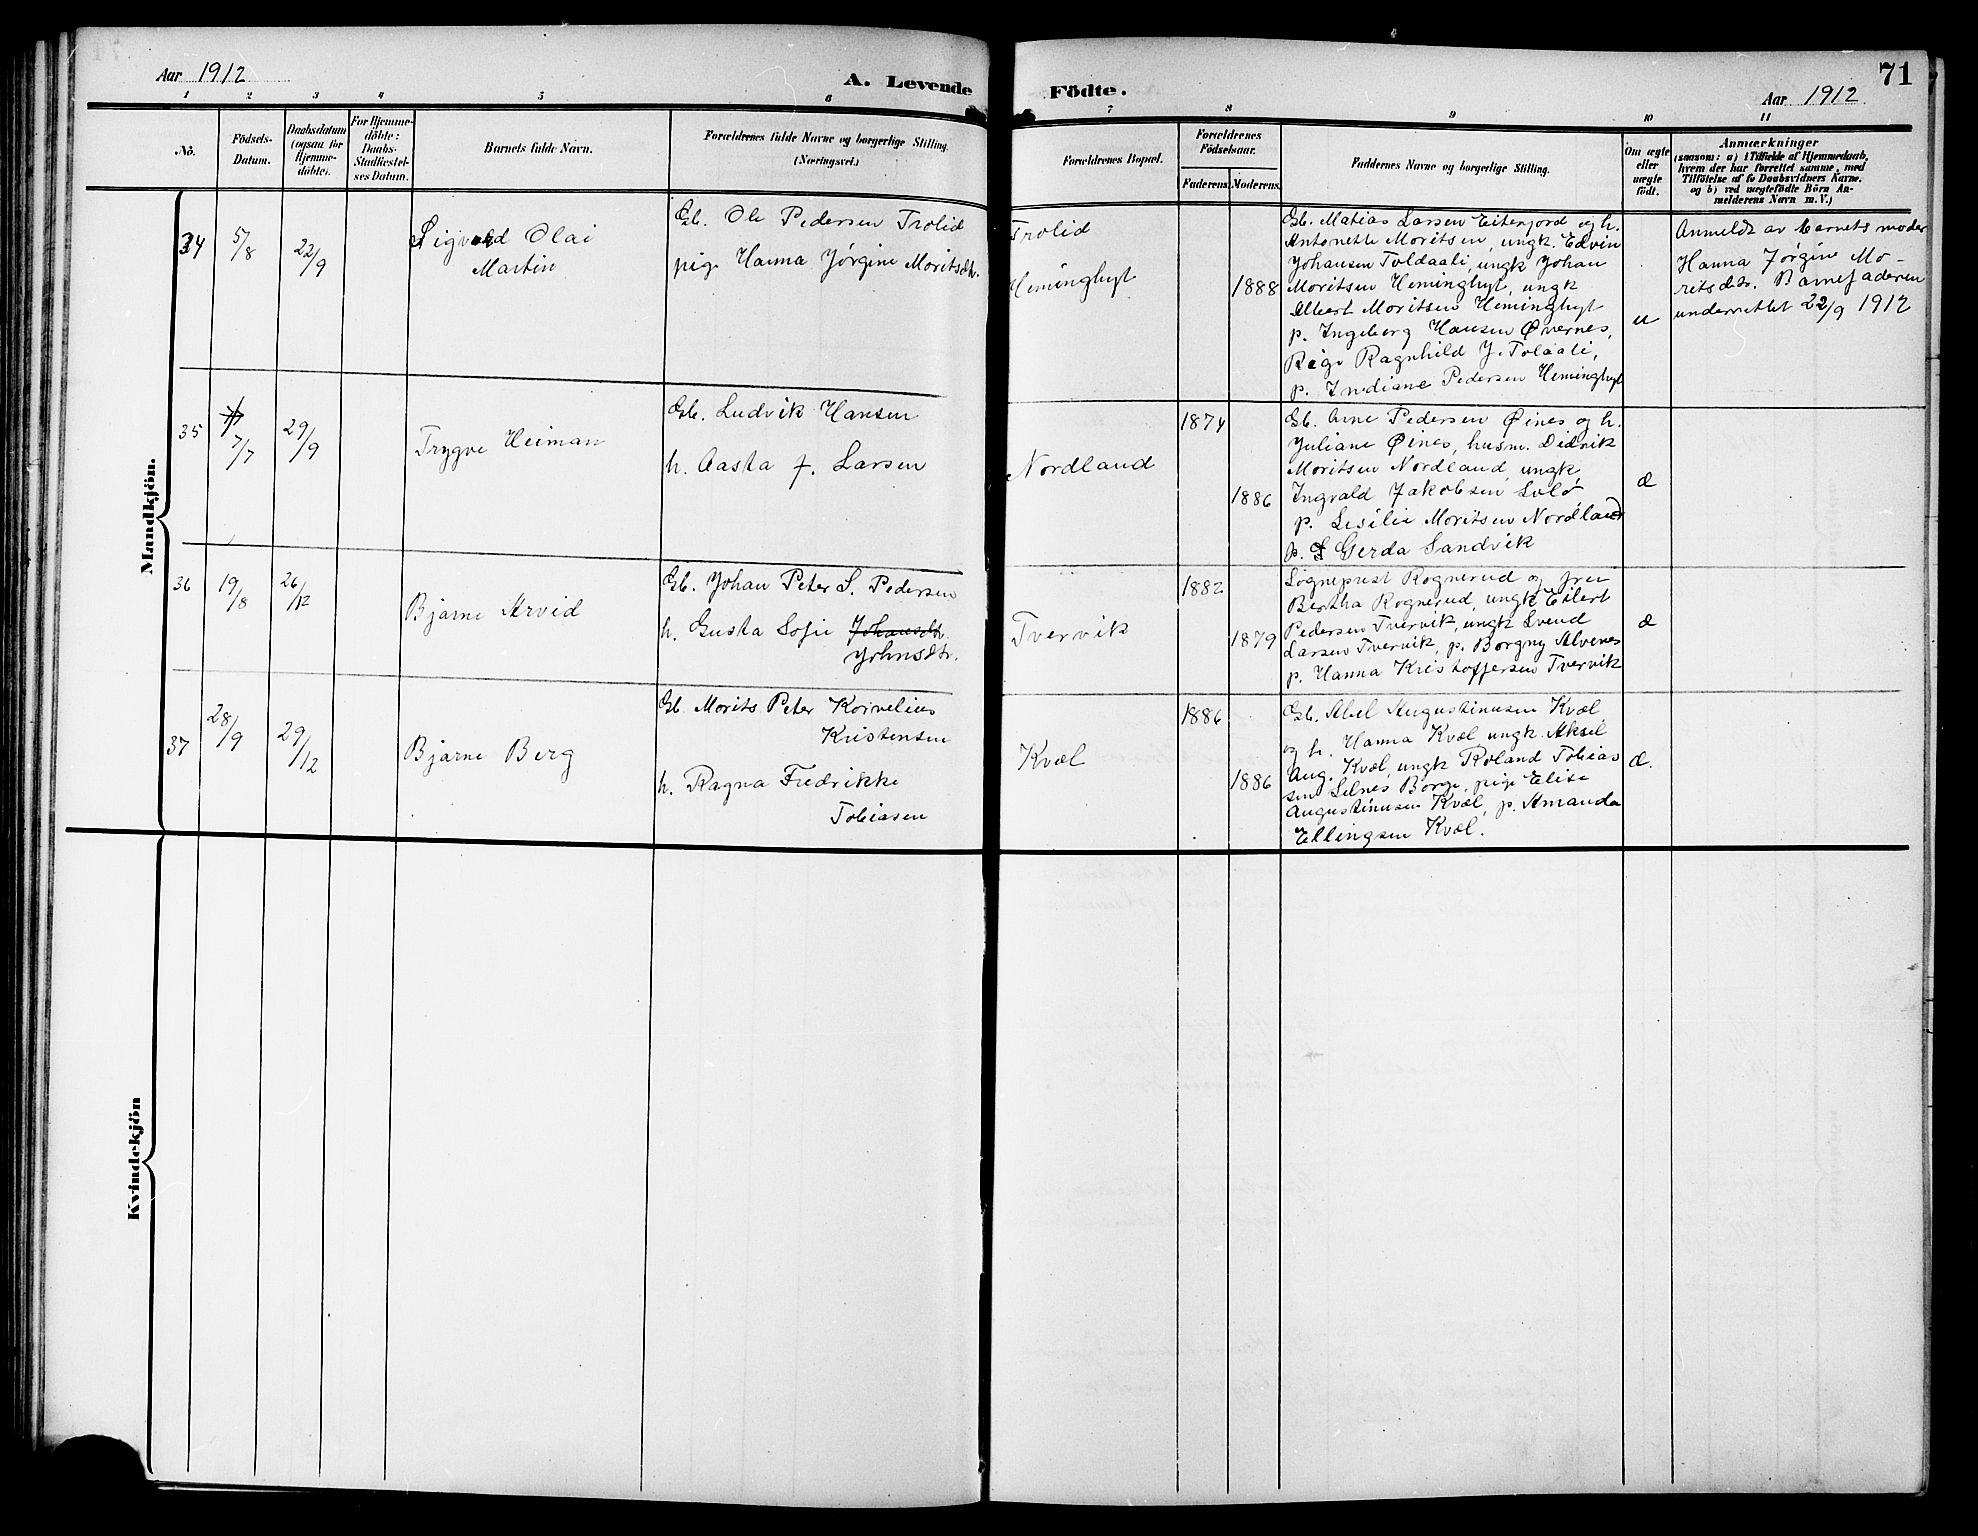 71
Aar 1912
A. Levende Födte.
Aar 1912
1 2 3 4 5 6 7 8 9 10 11
No.
Födsels-
Datum.
Daabsdatum
(ogsaa for
Hjemme-
döbte).
For Hjemme-
döbte:
Daabs-
Stadfæstel-
ses Datum.
Barnets fulde Navn.
Forældrenes fulde Navne og borgerlige Stilling.
(Næringsvei.)
Forældrenes Bopæl.
Forældrenes
Födselsaar.
Faderens.
Moderens.
Faddernes Navne og borgerlige Stilling.
Om ægte
eller
uægte
födt.
Anmærkninger
(saasom: a) i Tilfælde af Hjemmedaab,
hvem der har forrettet samme, med
Tilföielse af to Daabsvidners Navne,
og b) ved uægtefödte Börn An-
melderens Navn m. V.)
Mandkjön.
34
5/8
22/9
Sigvald Olai
Martin
Gb. Ole Pedersen Trolid
pige Hanna Jørgine Moritsdtr.
Trolid
Heminghyt
1888
Gb. Matias Larsen Eiterjord og h.
Antonette Moritsen, ungk. Edvin
Johansen Toldaali, ungk Johan
Moritsen Heminghyt, ungk
Albert Moritsen Heminghyt
p. Ingeborg Hansen Øvernes,
Pige Ragnhild J. Tolaali,
p. Indiane Pedersen Heminghyt
u
Anmeldt av barnets moder
Hanna Jørgine Mo-
ritsdtr. Barnefaderen
underrettet 22/9 1912
35
7/7
29/9
Trygve Heiman
Gb. Ludvik Hansen
h. Aasta f. Larsen
Nordland
1874
1886
Gb. Arne Pedersen Øines og h.
Juliane Øines, husm. Didrik
Moritsen Nordland ungk
Ingvald Jakobsen Solø
p. Lesilie Moritsen Nordland
p. Gerda Sandvik
æ
36
19/8
26/12
Bjarne Arvid
Gb. Johan Peter S. Pedersen
h. Gusta Sofie Johansdtr.
Johnsdtr.
Tvervik
1882
1879
Sogneprest Rognerud og frue
Bertha Rognerud, ungk Eilert
Pedersen Tvervik, ungk Svend
Larsen Tvervik, p. Borgny Alvenes
p. Hanna Kristoffersen Tvervik
æ
37
28/9
29/12
Bjarne Berg
Gb. Morits Peter Kornelius
Kristensen
h. Ragna Fredrikke
Tobiasen
Kvæl
1886
1886
Gb. Abel Augustinusen Kvæl
og h. Hanna Kvæl ungk Aksel
Aug. Kvæl, ungk Roland Tobias
sen Selnes Borge, pige Elise
Augustinusen Kvæl, p. Amanda
Ellingsen Kvæl.
æ.
Kvindekjön